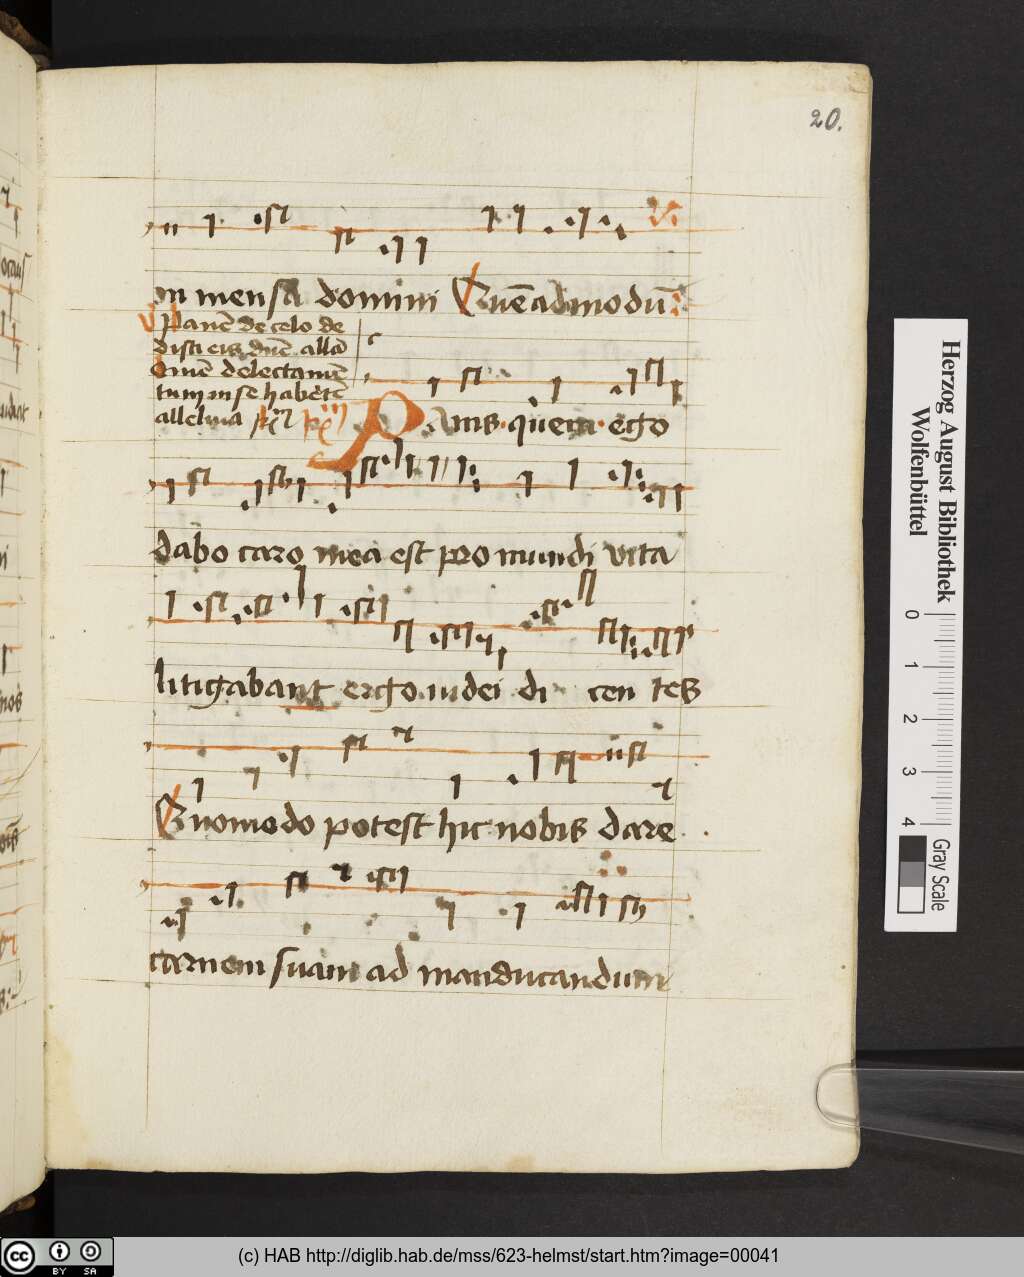 20.
in mensa domini Quēadmodū
V Panē de celo de
disti eis dnē allā
Omē delectamē
tum in se habētē
alleluia
Panis quem ego
dabo caro mea est pro mundi vita
litigabant ergo iudei di cen tes
Quomodo potest hic nobis dare
carnem suam ad manducandum
Herzog August Bibliothek
Wolfenbüttel
0 1 2 3 4
Gray Scale
cc BY SA
(c) HAB http://diglib.hab.de/mss/623-helmst/start.htm?image=00041